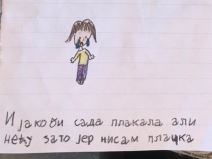 И јако би сада плакала али
нећу зато јер нисам плачка